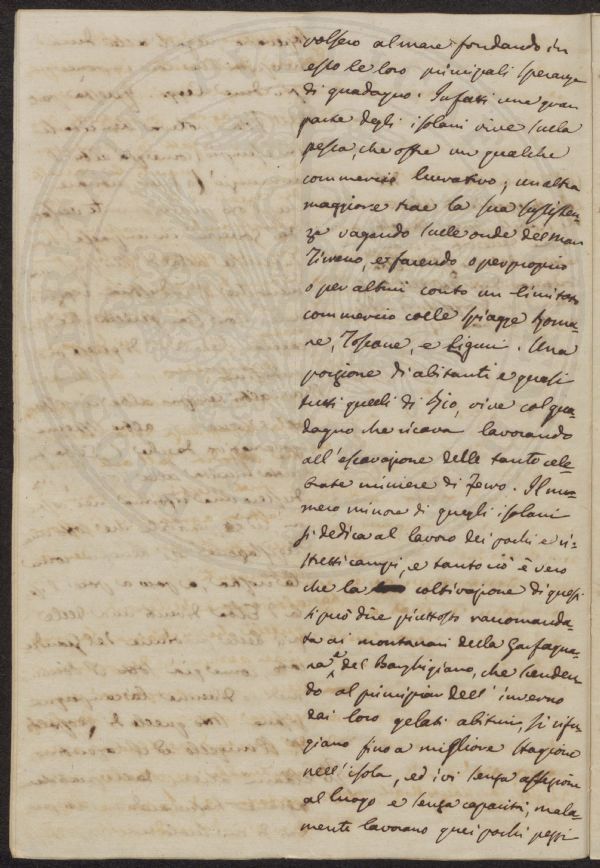 volsero al mare fondando in
esso le loro principali speranze
di guadagno. Infatti una gran
parte degli isolani vive sulla
pesca, che offre un qualche
commercio lucrativo; un altra
maggiore trae la sua sussisten=
za vagando sulle onde del mar
Tirreno, e facendo o per proprio
o per altrui conto un limitato
commercio colle spiagge Roma=
ne, Toscane, e Liguri. Una
porzione di abitanti e quasi
tutti quelli di Rio, vive col gua=
dagno che ricava lavorando
all'escavazione delle tanto cele=
brate miniere di Ferro. Il nu=
mero minore di quegli isolani
si dedica al lavoro dei pochi e ri=
stretti campi, e tanto ciò è vero
che la coltivazione di questi
si può dire piuttosto raccomanda=
ta ai montanari della Garfagna=
na e del Barghigiano, che scenden=
do al principiar dell'inverno
dai loro gelati abituri, si rifu=
giano fino a migliore stagione
nell'isola, ed ivi senza affezione
al luogo e senza capacità, mala=
mente lavorano quei pochi pezzi